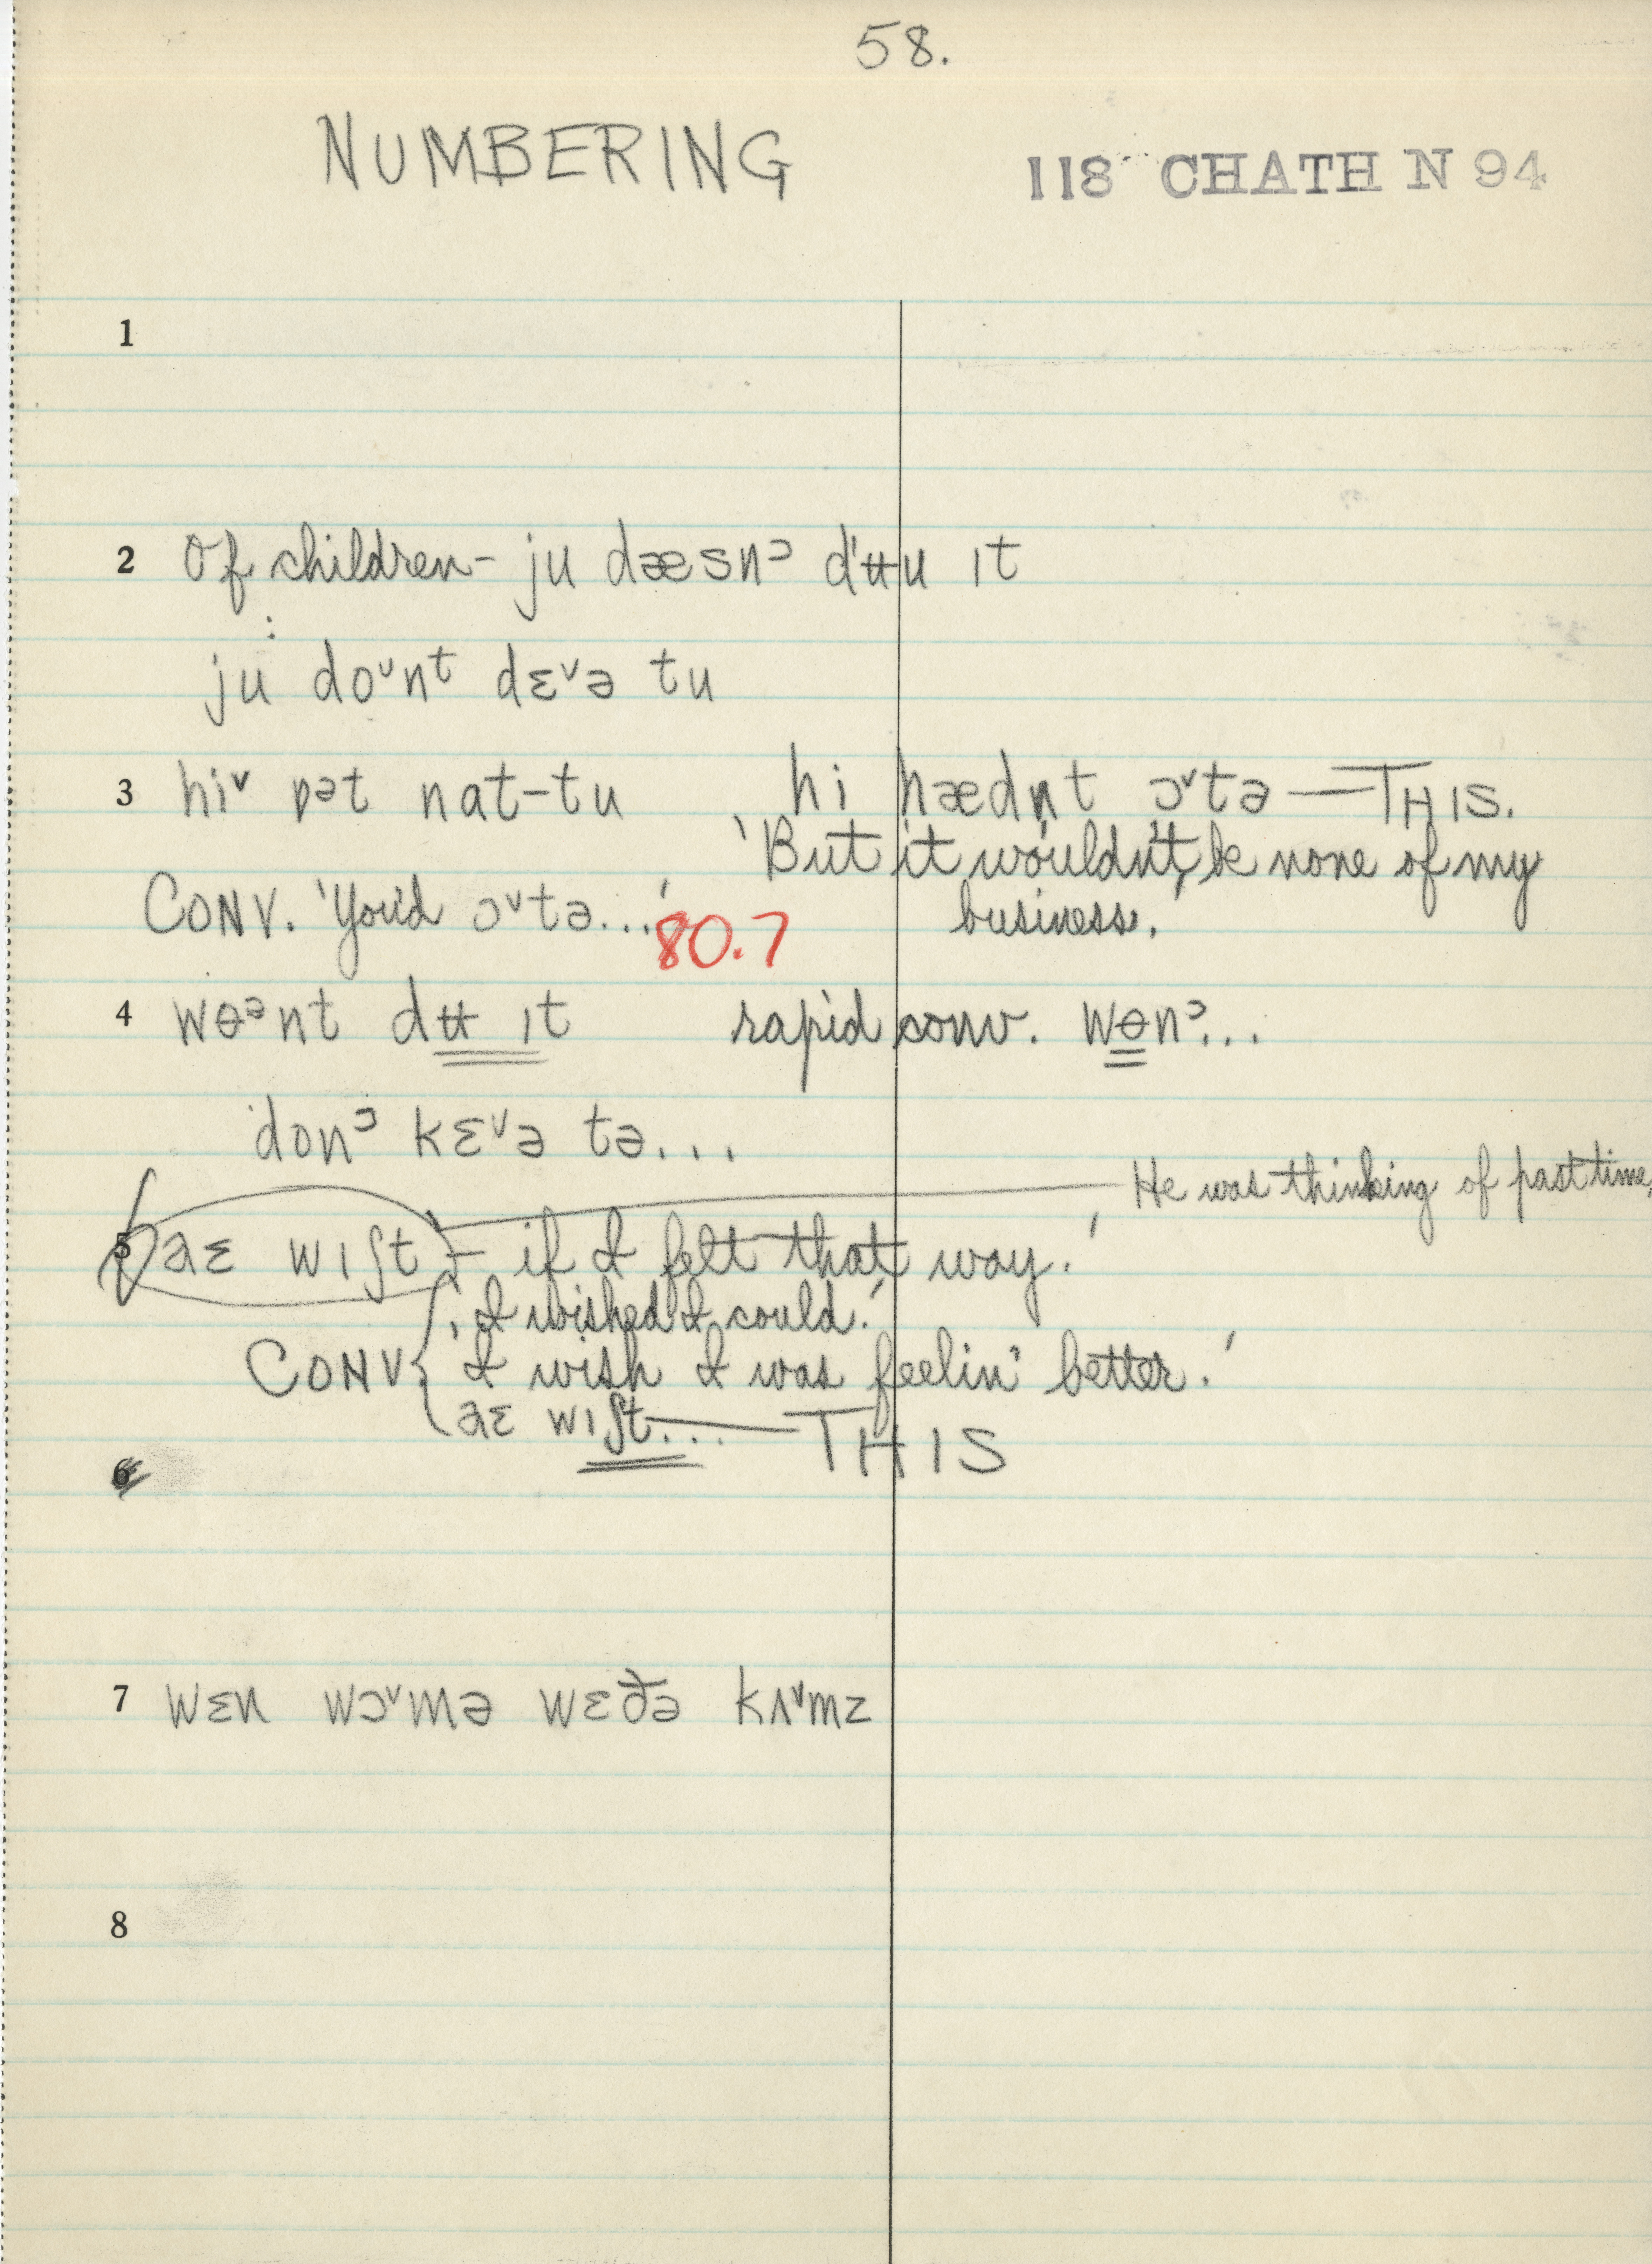 58.
NUMBERING
118 CHATH N 94
1
2 Of children - ju dæsnᵓ dʹʉu ɪt
:
ju doᵘnᵗ dɛᵛə tu
3 hiᵛ nat-tu hi hædn̩t ɔᵛtə — THIS.
'But it wouldn't be none of my
CONV. 'You'd ɔᵛtə...' 80.7 business.'
4 wɵᵊnt dʉ ɪt rapid conv. wɵnᵓ...
donᵓ kɛᵛə tə...
He was thinking of past time,
5 aɛ wɪʃt - 'if I felt that way.'
'I wished I could.'
CONV { 'I wish I was feelin' better.'
aɛ wɪʃt... — THIS
6
7 wɛn wɔᵛmə wɛðə kʌᵛmz
8